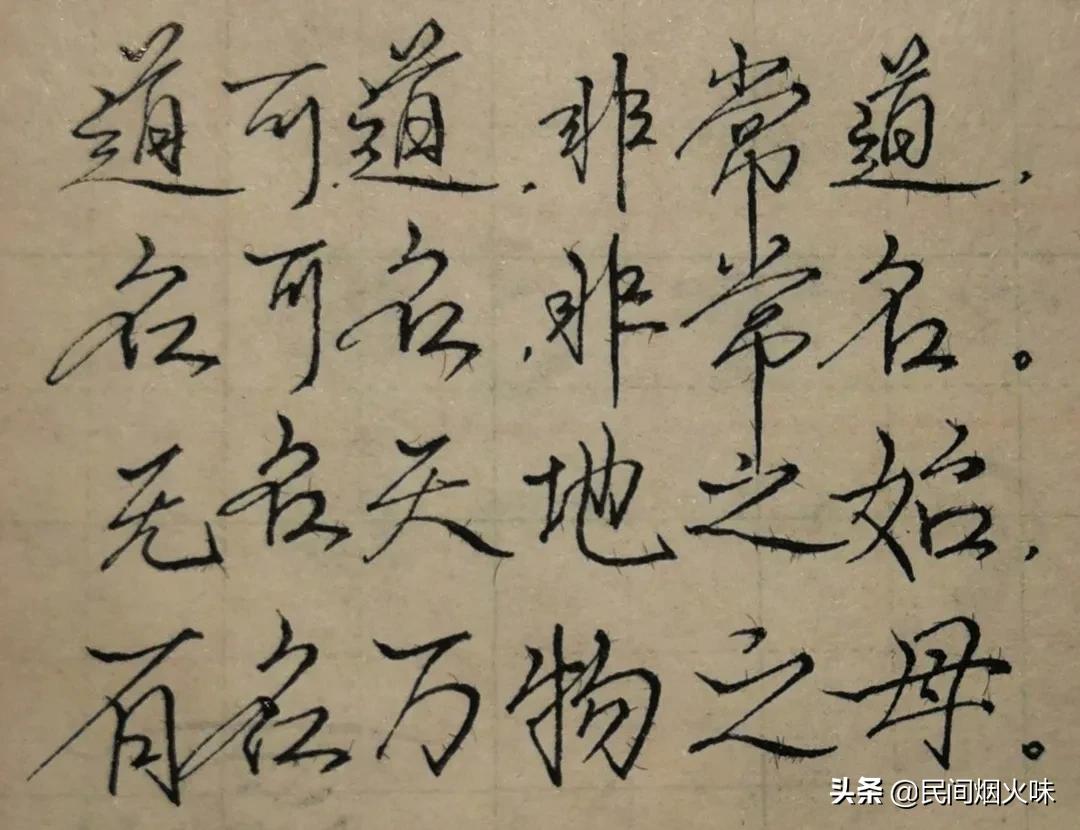 道可道,非常道,
名可名,非常名。
无名天地之始,
有名万物之母。
头条 @民间烟火味